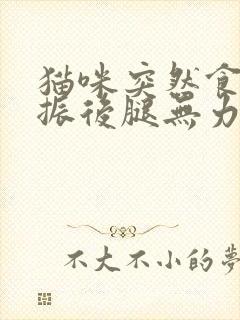 猫咪突然食
振後腿無力
不大不小的夢